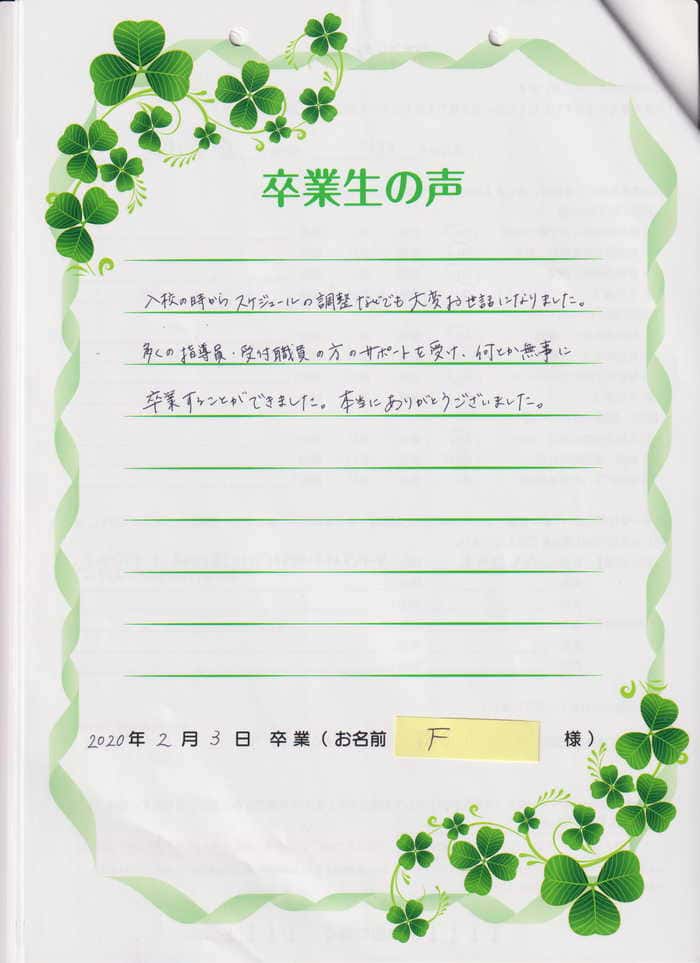 卒業生の声
入校の時からスケジュールの調整などでも大変お世話になりました。
多くの指導員・受付職員の方のサポートを受け、何とか無事に
卒業することができました。本当にありがとうございました。
2020年 2月 3日 卒業（お名前 F 様）